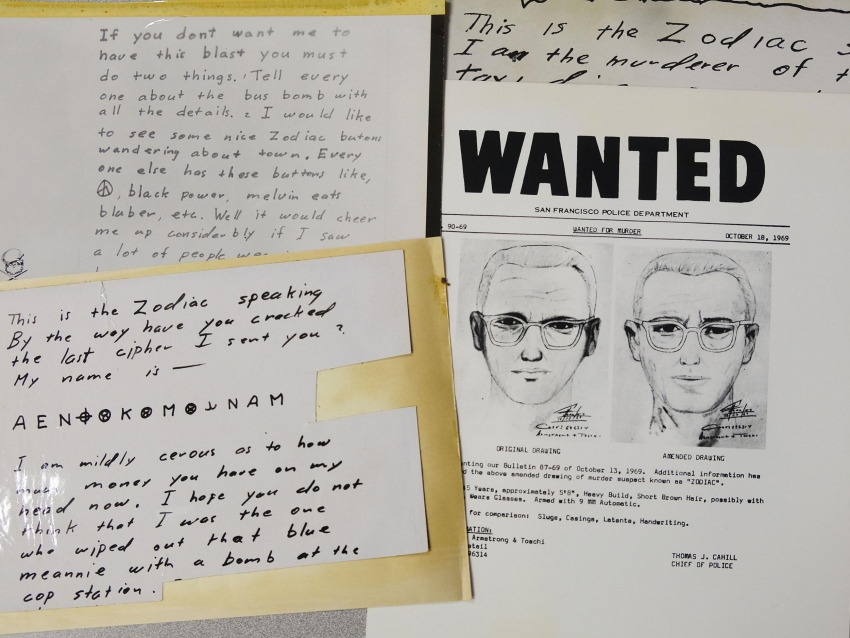 If you dont want me to
have this blast you must
do two things. 1 Tell every
one about the bus bomb with
all the details. 2 I would like
to see some nice Zodiac butons
wandering about town. Every
one else has these buttons like,
☮, black power, melvin eats
bluber, etc. Well it would cheer
me up considerbly if I saw
a lot of people
This is the Zodiac speaking
By the way have you cracked
the last cipher I sent you?
My name is —
A E N ⌖ ⊗ K ⊗ M ⊗ ⅃ N A M
I am mildly cerous as to how
much money you have on my
head now. I hope you do not
think that I was the one
who wiped out that blue
meannie with a bomb at the
cop station.
This is the Zodiac
I am the murderer of
WANTED
SAN FRANCISCO POLICE DEPARTMENT
90-69 WANTED FOR MURDER OCTOBER 18, 1969
ORIGINAL DRAWING AMENDED DRAWING
our Bulletin 87-69 of October 13, 1969. Additional information has
the above amended drawing of murder suspect known as "ZODIAC".
Years, approximately 5'8", Heavy Build, Short Brown Hair, possibly with
Wears Glasses. Armed with 9 MM Automatic.
for comparison: Slugs, Casings, Latents, Handwriting.
Armstrong & Toschi
THOMAS J. CAHILL
CHIEF OF POLICE